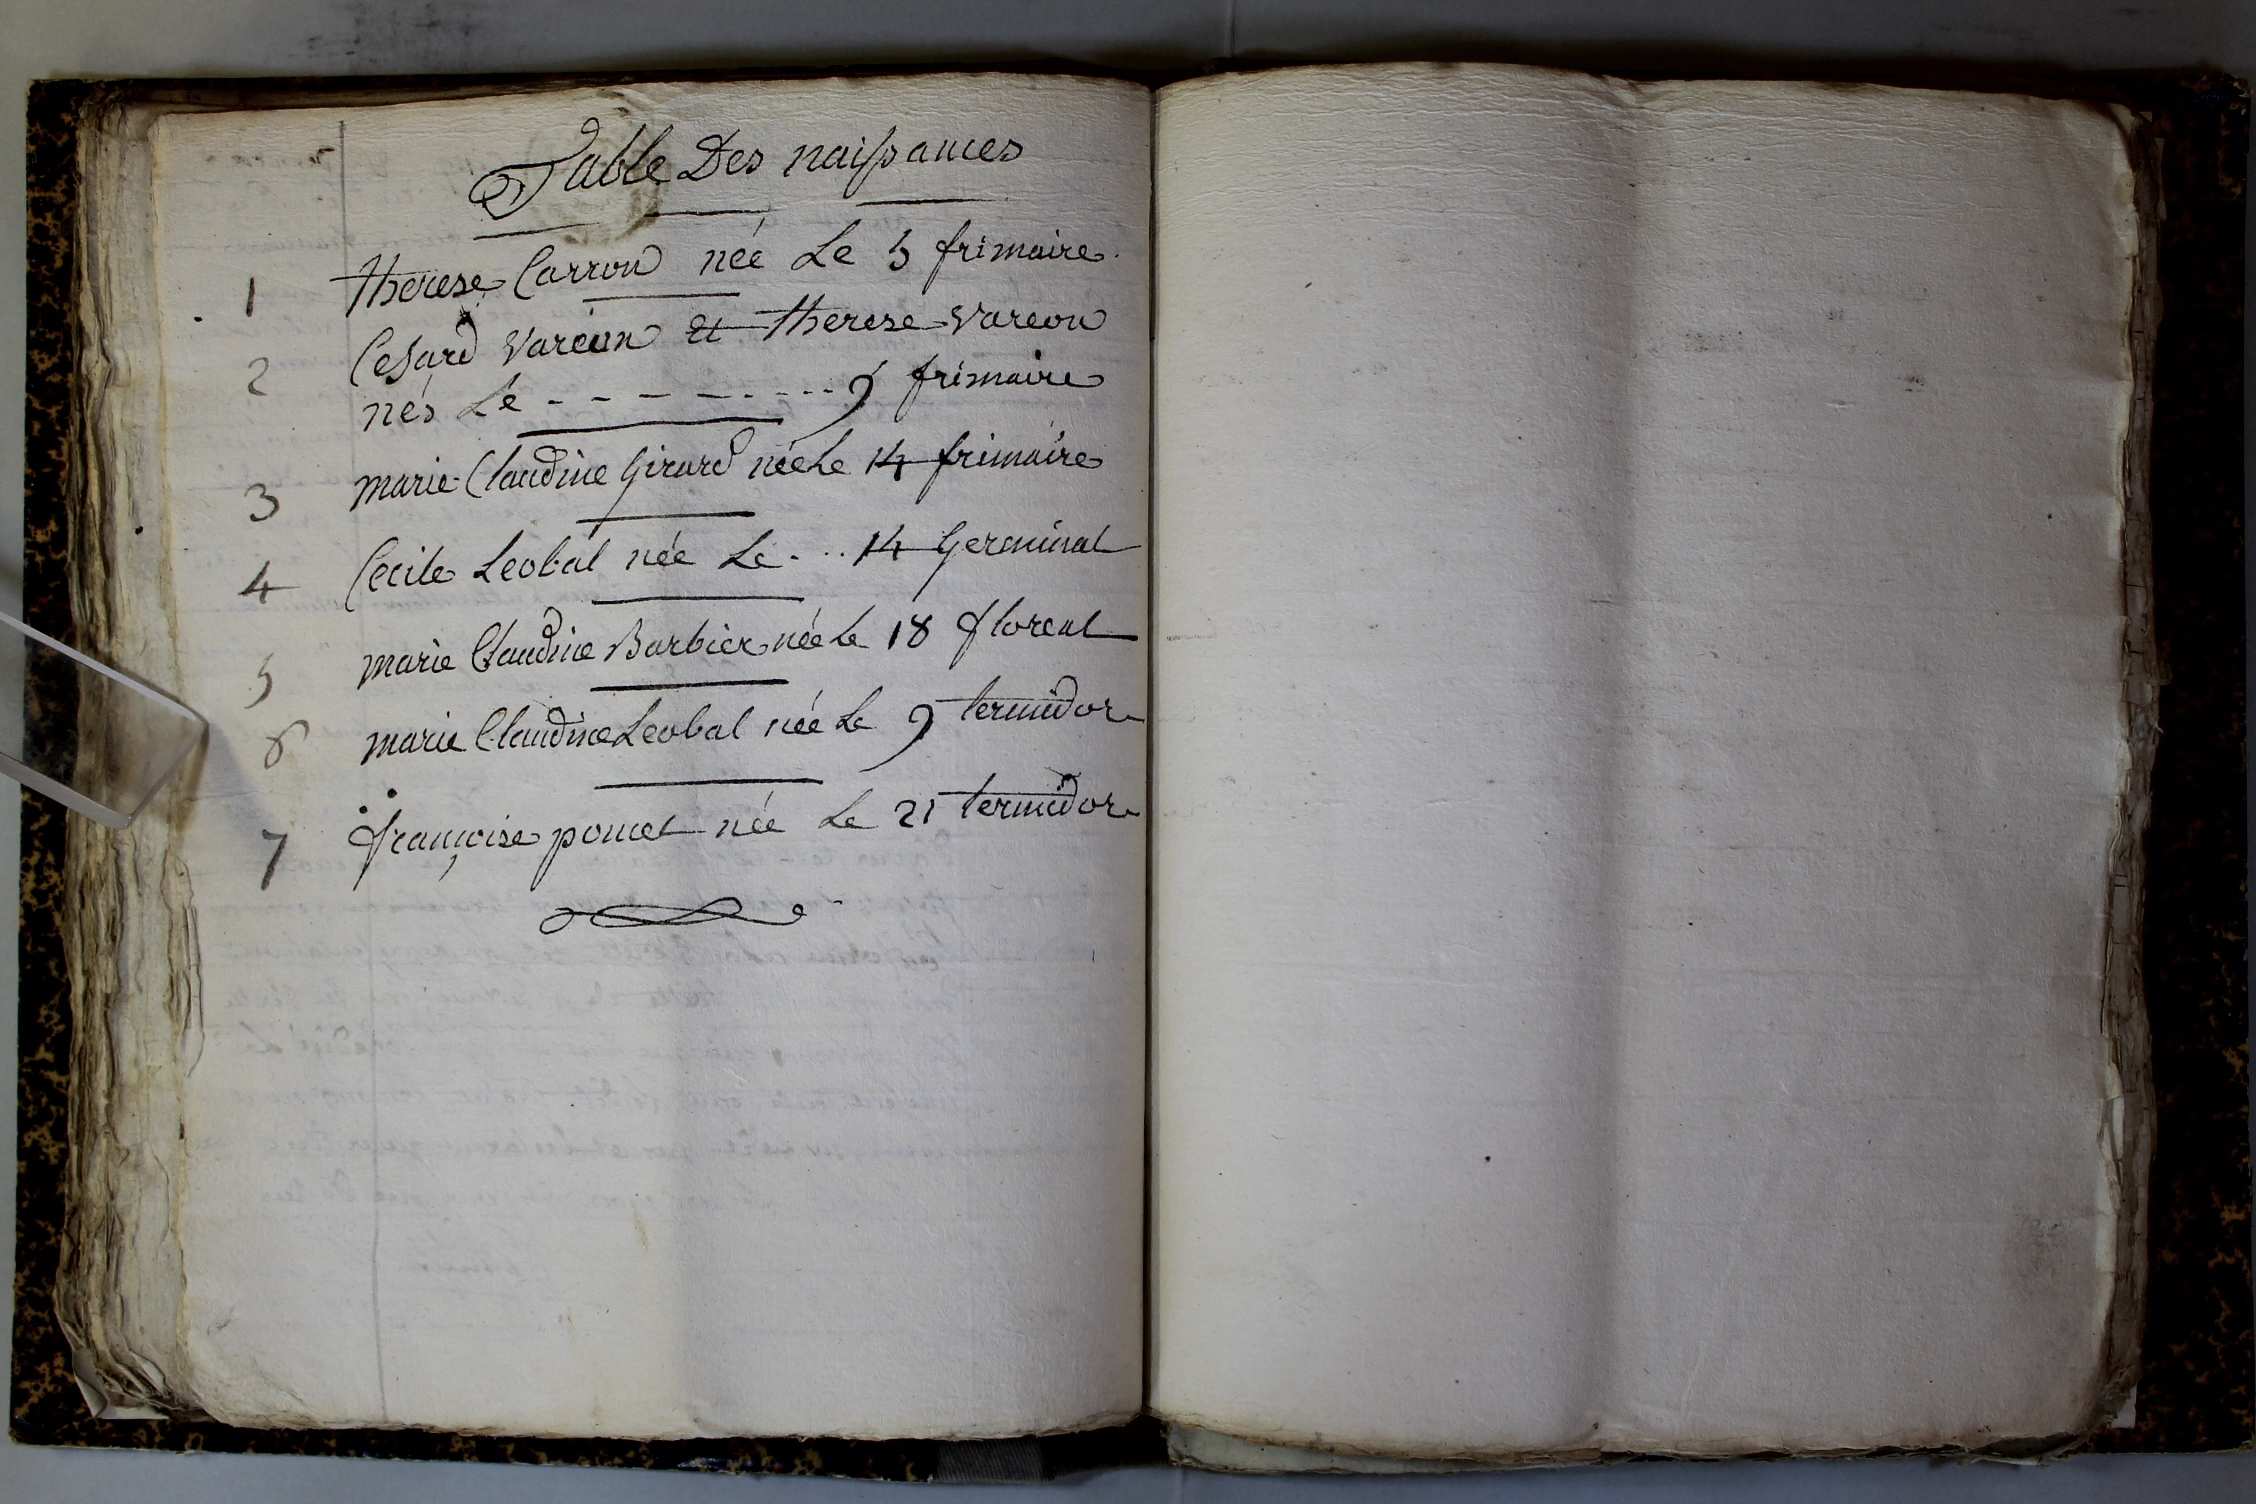 Table Des naissances
1 therese Carron née Le 5 frimaire
2 Cesard Vareon et therese Vareon
nés Le - - - - - - - - 9 frimaire
3 marie Claudine Girard née Le 14 frimaire
4 Cecile Leobal née Le - . . 14 Germinal
5 marie Claudine Barbier née Le 18 floreal
6 marie Claudine Leobal née Le 9 termidor
7 françoise poncet née Le 21 termidor